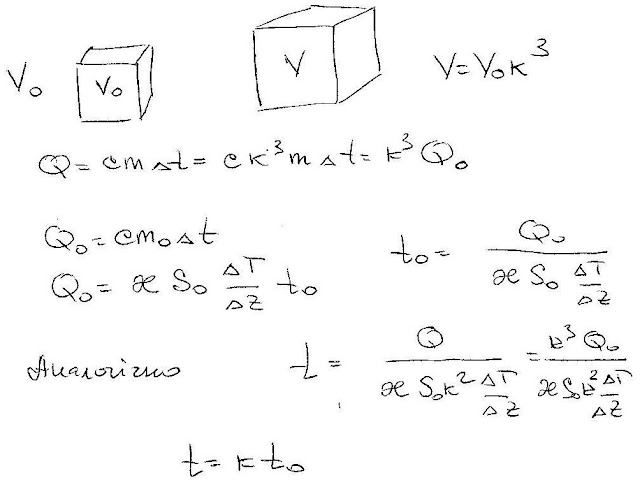 V₀ V₀ V V = V₀к³
Q = cm△t = cк³m△t = к³Q₀
Q₀ = cm₀△t
Q₀ = æ S₀ ΔT/ΔZ t₀
t₀ = Q₀ / (æ S₀ ΔT/ΔZ)
Аналогічно t = Q / (æ S₀к² ΔT/ΔZ) = к³Q₀ / (æ S₀к² ΔT/ΔZ)
t = к t₀